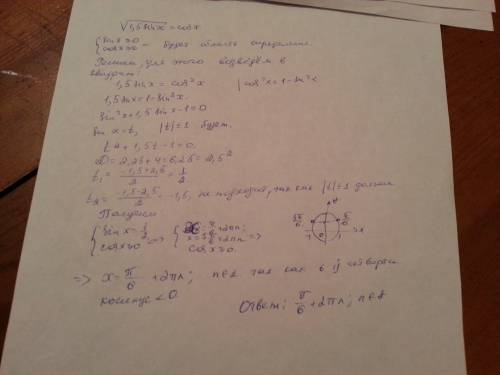 √1,5 sin x = cos x
{ sin x ≥ 0
cos x ≥ 0 – будет область определения.
Решаем, для этого возведём в
квадрат:
1,5 sin x = cos² x | cos² x = 1 - sin² x
1,5 sin x = 1 - sin² x.
sin² x + 1,5 sin x - 1 = 0
sin x = t, |t| ≤ 1 будет.
t² + 1,5t - 1 = 0.
D = 2,25 + 4 = 6,25 = 2,5²
t₁ = (-1,5+2,5)/2 = 1/2
t₂ = (-1,5-2,5)/2 = -1,5, не подходит, так как |t| ≤ 1 должен
Получаем
{ sin x = 1/2
cos x ≥ 0 => { x = π/6 + 2πn;
x = 5π/6 + 2πn =>
cos x ≥ 0.
5π/6 π/6
-1 0 1
=> x = π/6 + 2πn; n∈Z так как в четверти
косинус < 0.
Ответ: π/6 + 2πn; n∈Z